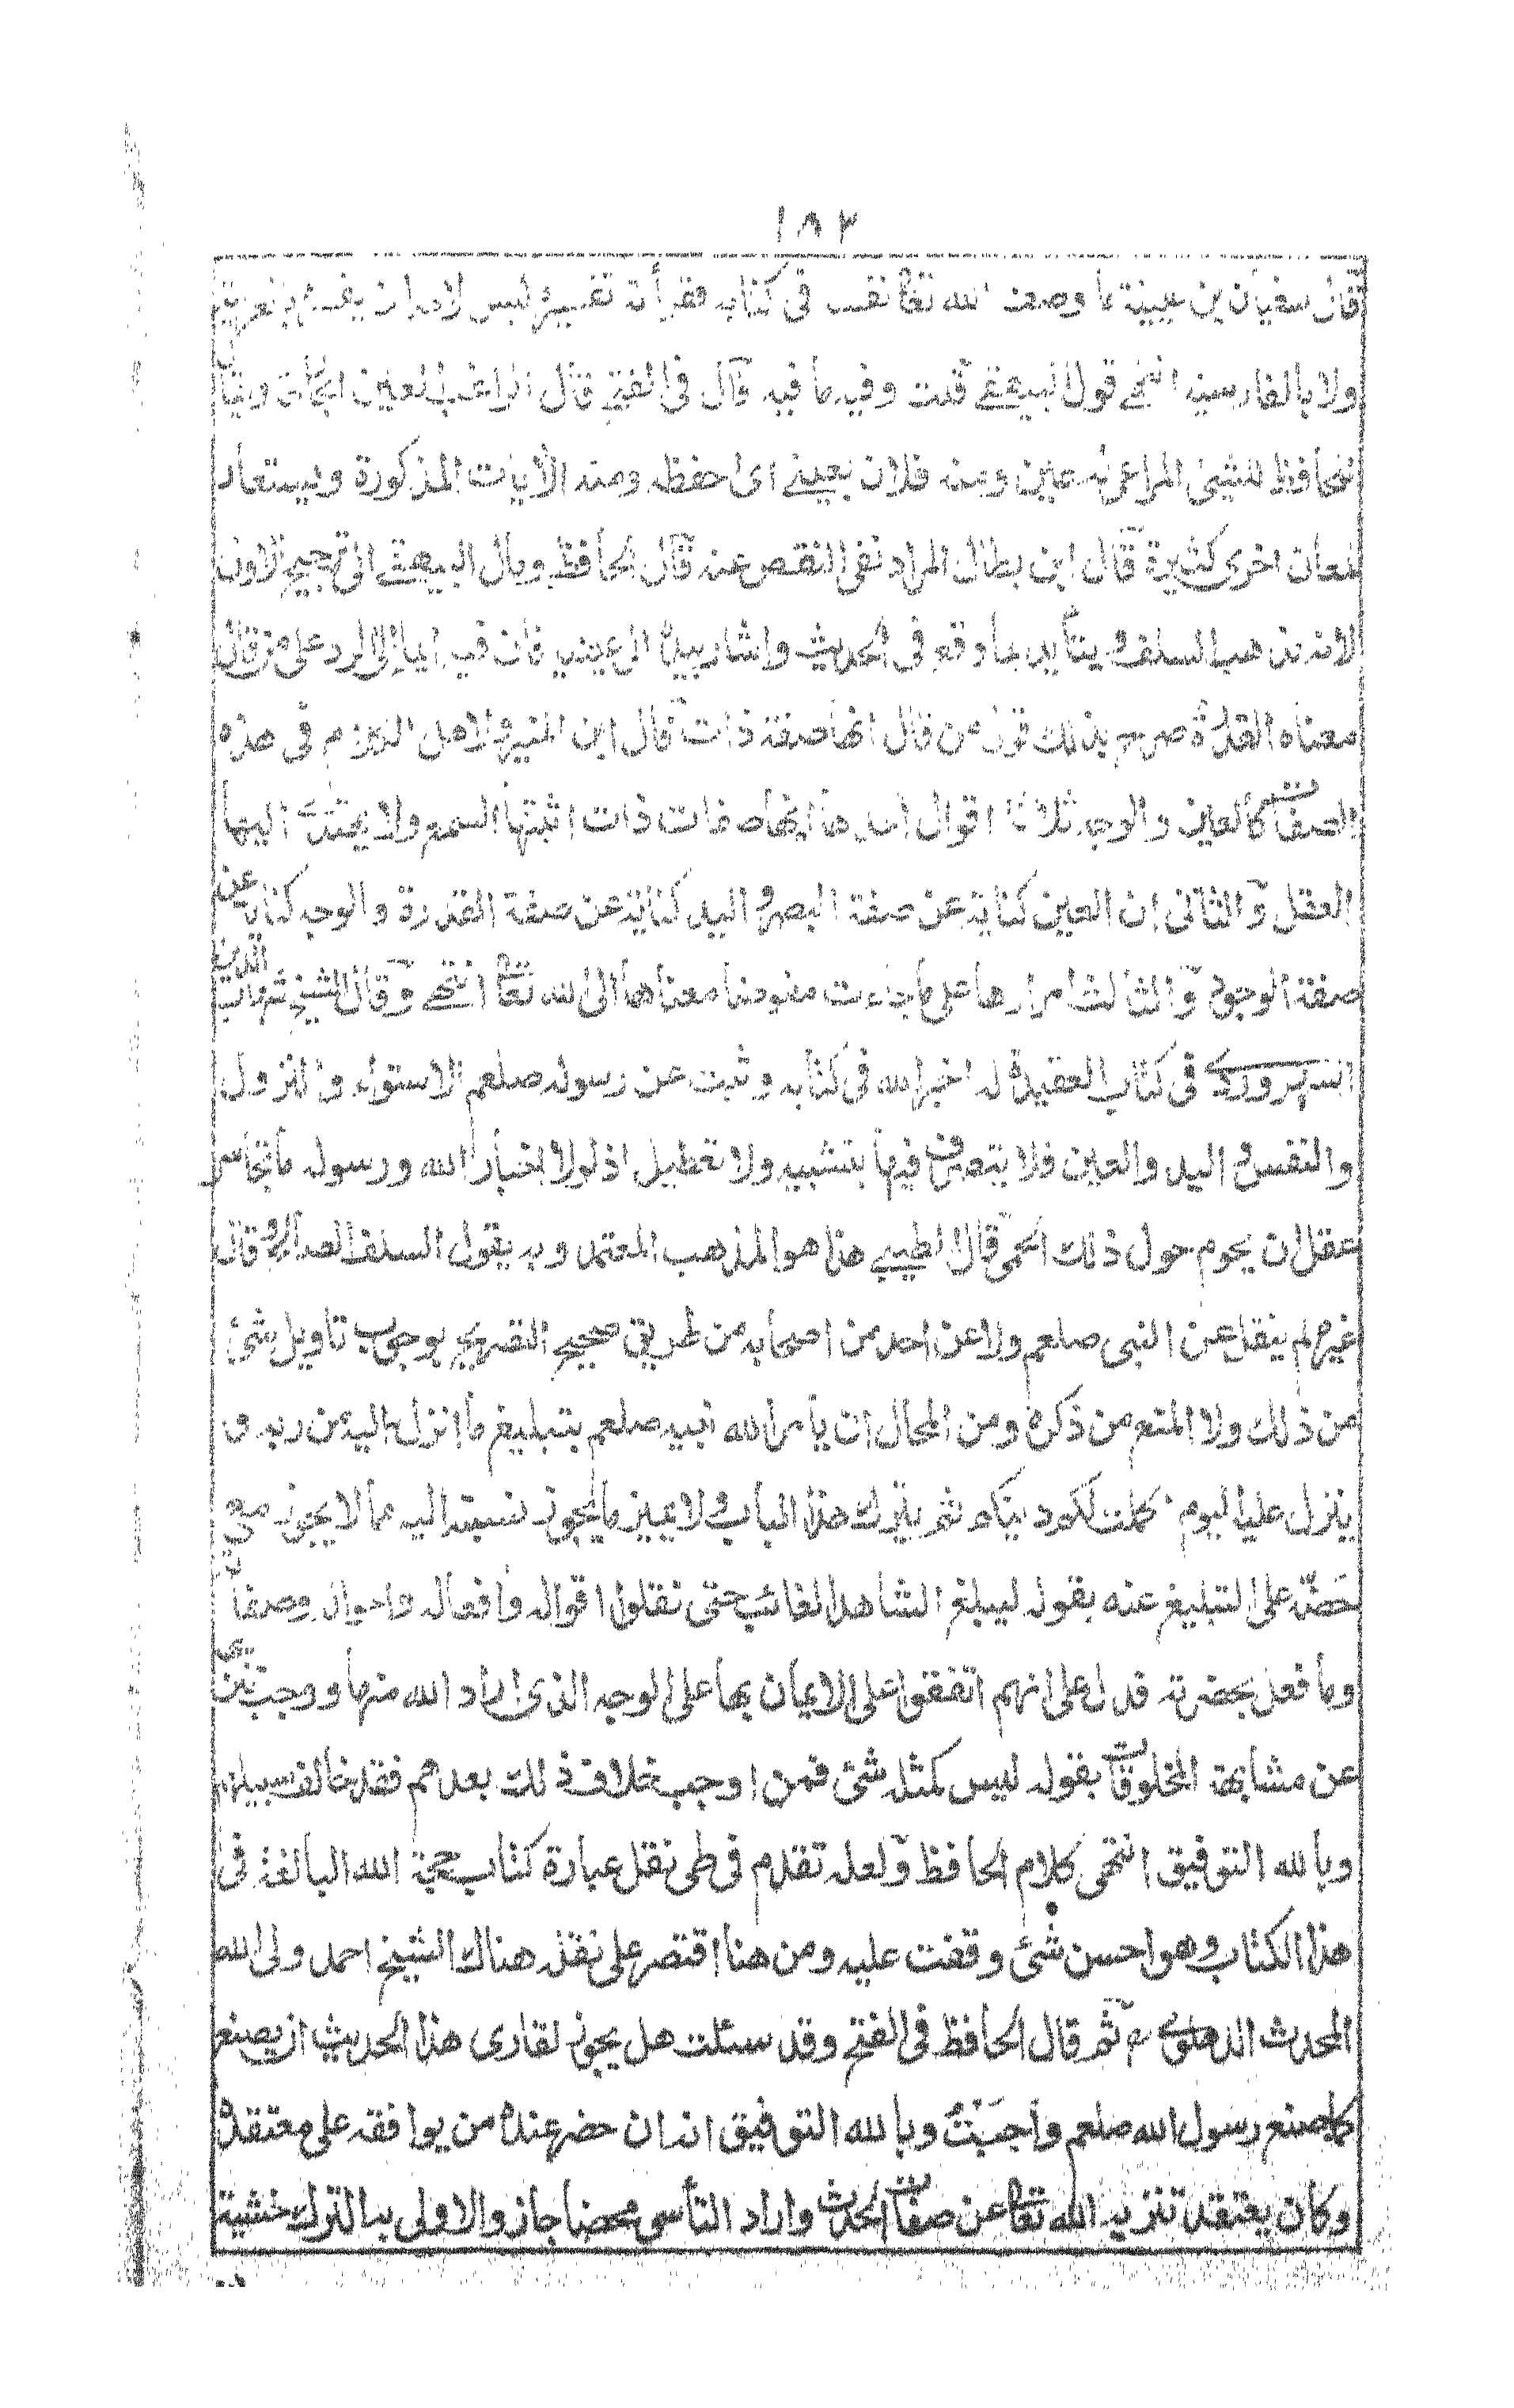 ١٨٢
قال سفيان بن عيينة ما وصف الله تعا نفسه فى كتابه فقرأته تفسيره ليس لاحد ان يفسره بالعربية
ولا بالفارسية انتهى قول البيهقى قلت وفيه ما فيه قال فى الفتح قال الراغب العين الجارحة ويقال
للحافظ للشئ المراعى له عين ومنه فلان بعينى اى احفظه ومنه الأيات المذكورة ويستعار
لمعان اخرى كثيرة قال ابن بطال المراد نفى النقص عنه قال الحافظ ومال البيهقى الى ترجيح الاول
لانه مذهب السلف ويتأيد بما وقع فى الحديث واشار بيده الى عينيه فان فيه ايماء الى الرد على من قال
معناه القدرة صرح بذلك قول من قال انها صفة ذات قال ابن المنير ولاهل الكلام فى هذه
الصفات كالعين والوجه ثلاثة اقوال احدها انها صفات ذات اثبتها السمع ولا يهتدى اليها
العقل والثانى ان العين كناية عن صفة البصر واليد كناية عن صفة القدرة والوجه كناية عن
صفة الوجود والثالث امرارها على ما جاءت مفوضا معناها الى الله تعا انتهى وقال الشيخ شهاب الدين
السهروردى فى كتاب العقيدة له اخبر الله فى كتابه وثبت عن رسوله صلعم الاستواء والنزول
والنفس واليد والعين فلا يتصرف فيها بتشبيه ولا تعطيل اذ لولا اخبار الله ورسوله ما تجاسر
عقل ان يحوم حول ذلك الحمى قال الطيبى هذا هو المذهب المعتمد وبه يقول السلف الصالح وقال
غيره لم ينقل عن النبى صلعم ولا عن احد من اصحابه من طريق صحيح التصريح بوجوب تاويل شئ
من ذلك ولا المنع من ذكره ومن المحال ان يأمر الله نبيه صلعم بتبليغ ما انزل اليه من ربه و
ينزل عليه اليوم اكملت لكم دينكم ثم يترك هذا الباب ولا يميز ما يجوز نسبته اليه مما لا يجوز مع
حضّه على التبليغ عنه بقوله ليبلغ الشاهد الغائب حتى نقلوا اقواله وافعاله واحواله وصفاته
وما فعل بحضرته فدل على انهم اتفقوا على الايمان بها على الوجه الذى اراد الله منها ووجب تنزيهه
عن مشابهة المخلوقات بقوله ليس كمثله شئ فمن اوجب خلاف ذلك بعدهم فقد خالف سبيلهم
وبالله التوفيق انتهى كلام الحافظ ولعله تقدم فى طى نقل عبارة كتاب حجة الله البالغة فى
هذا الكتاب وهو احسن شئ وقفت عليه ومن هنا اقتصر على نقله هناك الشيخ احمد ولى الله
المحدث الدهلوى رح ثم قال الحافظ فى الفتح وقد سئلت هل يجوز لقارى هذا الحديث ان يصنع
كما صنع رسول الله صلعم وأجبتُ وبالله التوفيق انه ان حضر عنده من يوافقه على معتقده
وكان يعتقد تنزيه الله تعا عن صفات الحدث واراد التأسى محضا جاز والاولى به الترك خشية